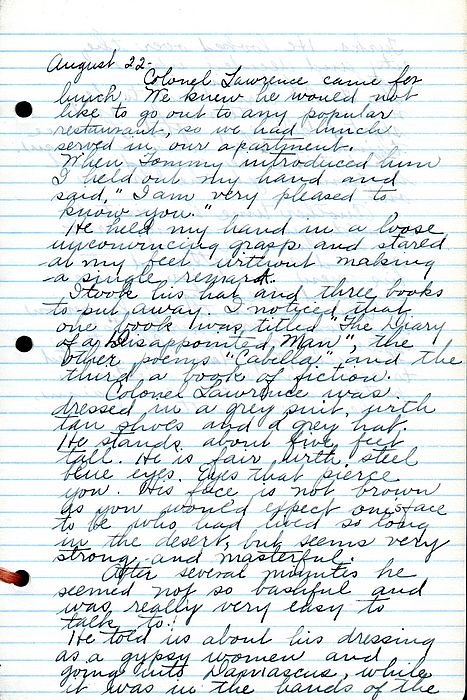 August 22-
Colonel Lawrence came for
lunch. We knew he would not
like to go out to any popular
restaurant, so we had lunch
served in our apartment.
When Tommy introduced him
I held out my hand and
said, "I am very pleased to
know you."
He held my hand in a loose
unconvincing grasp and stared
at my feet without making
a single remark.
I took his hat and three books
to put away. I noticed that
one book was titled "The Diary
of a Disappointed Man", the
other poems "Cabella" and the
third a book of fiction.
Colonel Lawrence was
dressed in a grey suit, with
tan shoes and a grey hat.
He stands about five feet
tall. He is fair with steel
blue eyes. Eyes that pierce
you. His face is not brown
as you would expect one's face
to be who had lived so long
in the desert, but seems very
strong and masterful.
After several minutes he
seemed not so bashful and
was really very easy to
talk to.
He told us about his dressing
as a gypsy women and
going into Damascus, while
it was in the hands of the